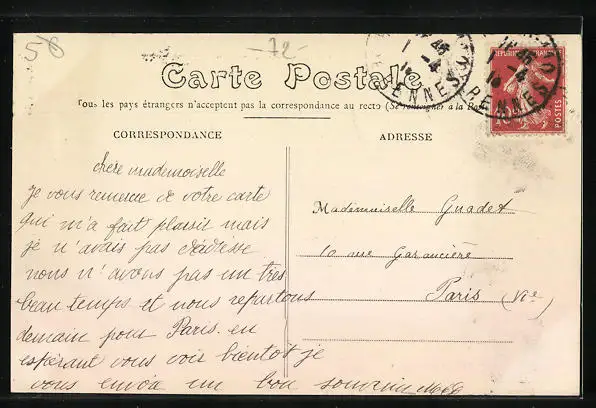 58
-72-
Carte Postale
Tous les pays étrangers n'acceptent pas la correspondance au recto (Se renseigner à la Poste)
CORRESPONDANCE
ADRESSE
RENNES
RENNES
REPUBLIQUE FRANÇAISE
10
POSTES
chère mademoiselle
Je vous remercie de votre carte
qui m'a fait plaisir mais
je n'avais pas d'adresse
nous n'avons pas un tres
beau temps et nous repartons
demain pour Paris. en
espérant vous voir bientôt je
vous envoie un bon souvenir
Mademoiselle Guadet
10 rue Garancière
Paris (VIe)